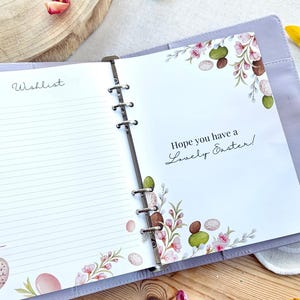 Wishlist
Hope you have a
Lovely Easter!